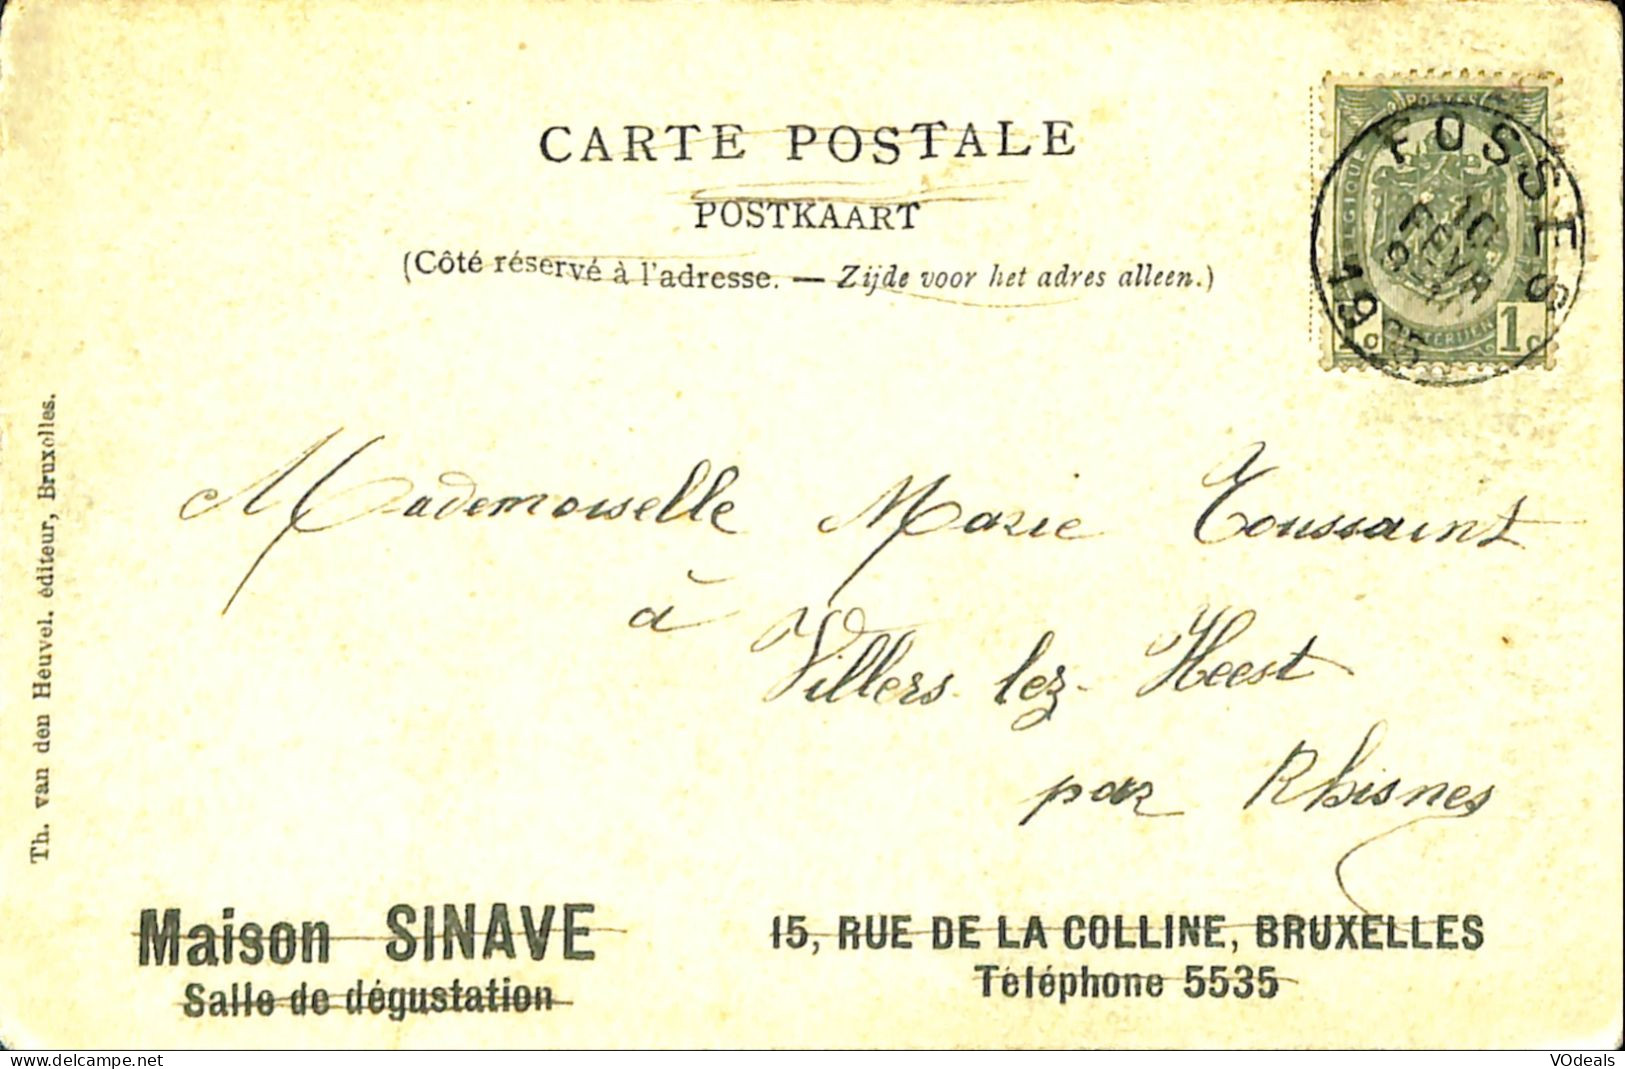 CARTE POSTALE
POSTKAART
(Côté réservé à l'adresse. — Zijde voor het adres alleen.)
POSTES
BELGIQUE
1c 1c
FOSSES
10
FEVR
1905
Mademoiselle Marie Toussaint
à
Villers-lez-Heest
par Rhisnes
Th. van den Heuvel. éditeur, Bruxelles.
Maison SINAVE
Salle de dégustation
15, RUE DE LA COLLINE, BRUXELLES
Téléphone 5535
www.delcampe.net
VOdeals